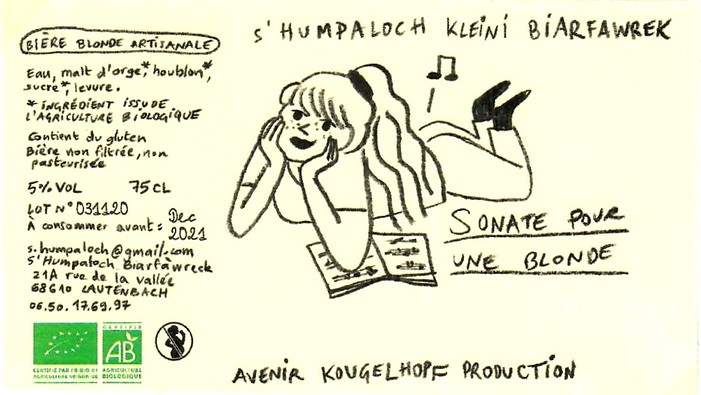 BIÈRE BLONDE ARTISANALE
Eau, malt d'orge*, houblon*,
sucre*, levure.
* INGRÉDIENT ISSU DE
L'AGRICULTURE BIOLOGIQUE
Contient du gluten
Bière non filtrée, non
pasteurisée
5% VOL 75 CL
LOT N° 031120
À consommer avant : Dec
2021
s.humpaloch@gmail.com
S'Humpaloch Biarfawreck
21A rue de la vallée
68610 LAUTENBACH
06.50.17.69.97
CERTIFIÉ
AB
AGRICULTURE
BIOLOGIQUE
S'HUMPALOCH KLEINI BIARFAWREK
SONATE POUR
UNE BLONDE
AVENIR KOUGELHOPF PRODUCTION